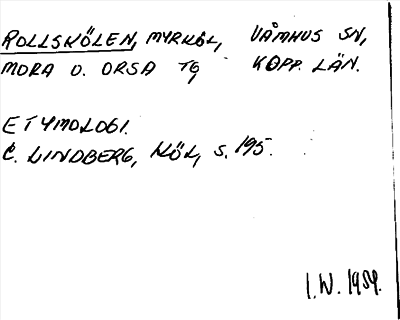 ROLLSKÖLEN, MYRKÖL, VÅMHUS SN,
MORA O. ORSA TG KOPP. LÄN.
ETYMOLOGI.
C. LINDBERG, KÖL, S. 195.
I.W. 1989.